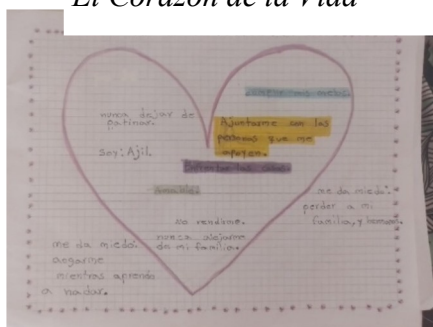 El Corazón de la Vida
nunca dejar de
patinar.
Ajuntarme con las
personas que me
apoyen.
Soy: Ajil.
me da miedo:
perder a mi
familia, y
no rendirme.
nunca alejarme
de mi familia.
me da miedo:
aogarme
mientras aprendo
a nadar.